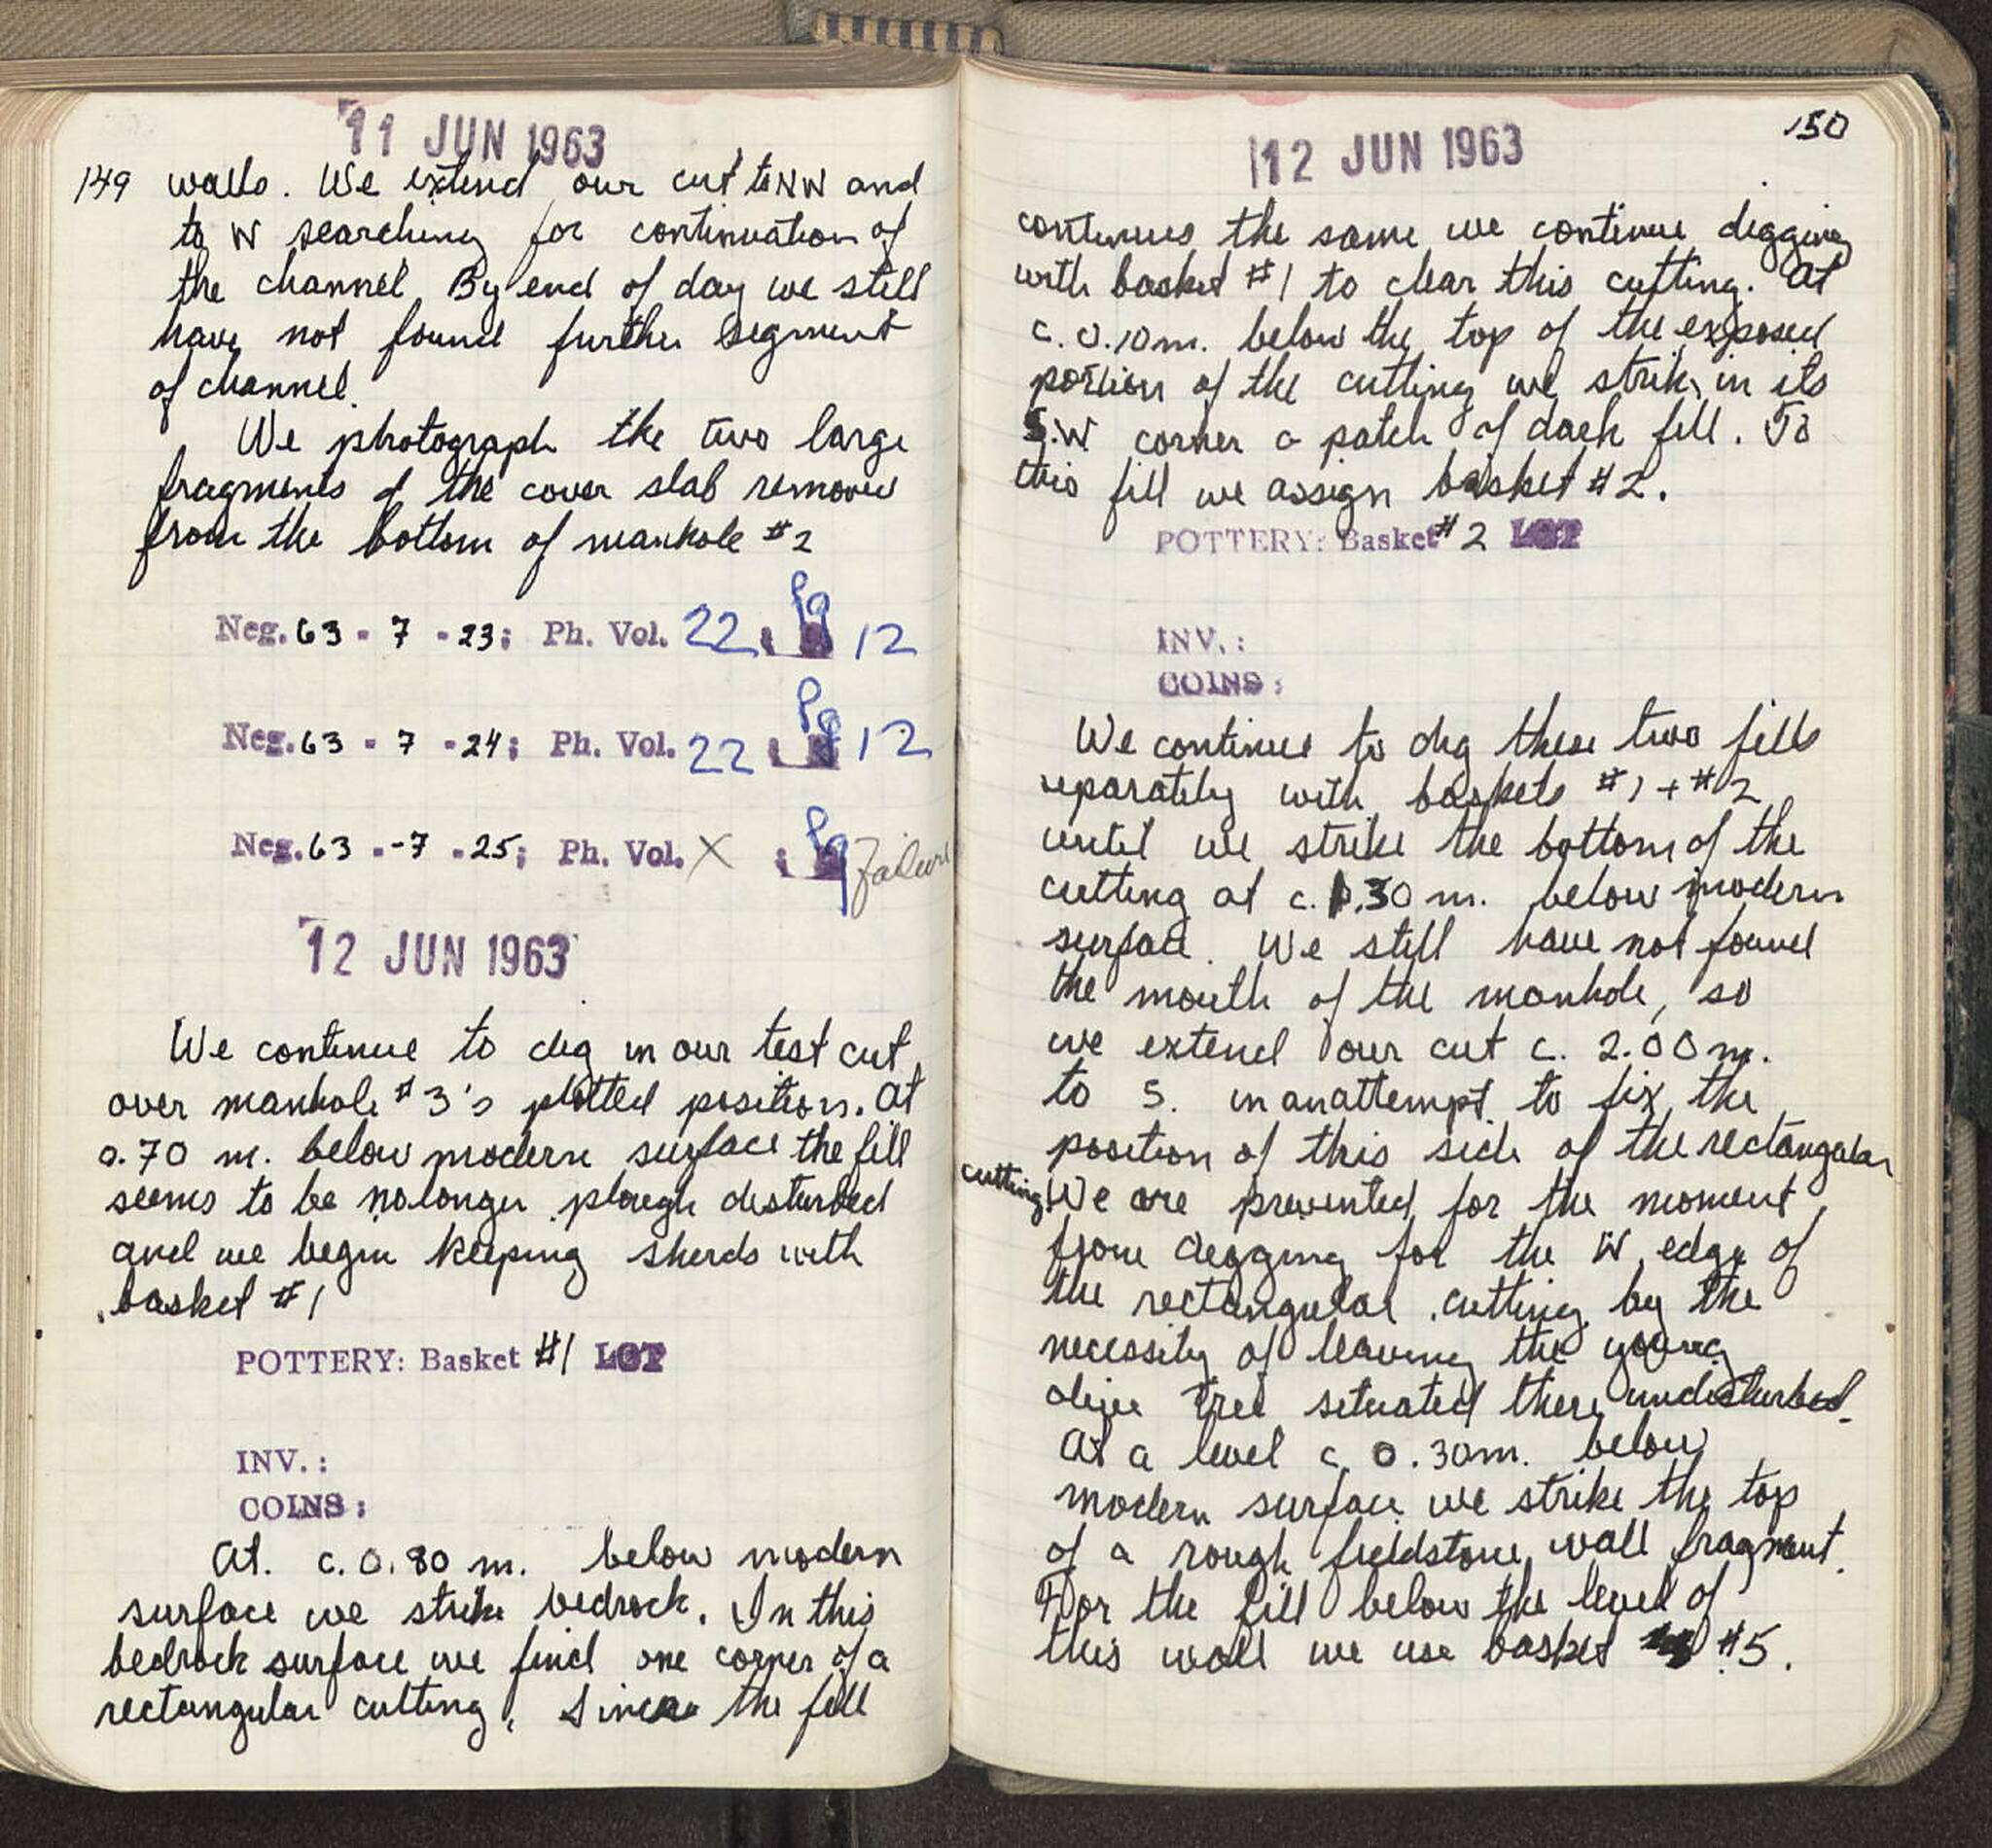 11 JUN 1963
149 walls. We extend our cut to NW and
to W searching for continuation of
the channel. By end of day we still
have not found further segment
of channel.
We photograph the two large
fragments of the cover slab removed
from the bottom of manhole #2
Neg. 63 - 7 - 23; Ph. Vol. 22 Pg 12
Neg. 63 - 7 - 24; Ph. Vol. 22 Pg 12
Neg. 63 - 7 - 25; Ph. Vol. X Pg failure
12 JUN 1963
We continue to dig in our test cut
over manhole #3's plotted position. At
0.70 m. below modern surface the fill
seems to be no longer plough disturbed
and we begin keeping sherds with
basket #1
POTTERY: Basket #1 LOT
INV.:
COINS:
At c. 0.80 m. below modern
surface we strike bedrock. In this
bedrock surface we find one corner of a
rectangular cutting. Since the fill
150
12 JUN 1963
continues the same we continue digging
with basket #1 to clear this cutting. At
c. 0.10 m. below the top of the exposed
portion of the cutting we strike in its
S.W corner a patch of dark fill. To
this fill we assign basket #2.
POTTERY: Basket #2 LOT
INV.:
COINS:
We continue to dig these two fills
separately with baskets #1 + #2
until we strike the bottom of the
cutting at c. 1.30 m. below modern
surface. We still have not found
the mouth of the manhole, so
we extend our cut c. 2.00 m.
to S. in an attempt to fix the
position of this side of the rectangular
cutting. We are prevented for the moment
from digging for the W edge of
the rectangular cutting by the
necessity of leaving the young
olive tree situated there undisturbed.
At a level c. 0.30 m. below
modern surface we strike the top
of a rough fieldstone wall fragment.
For the fill below the level of
this wall we use basket #5.